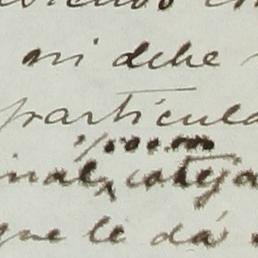 ni debe
particula
inal, coteja
que le dá